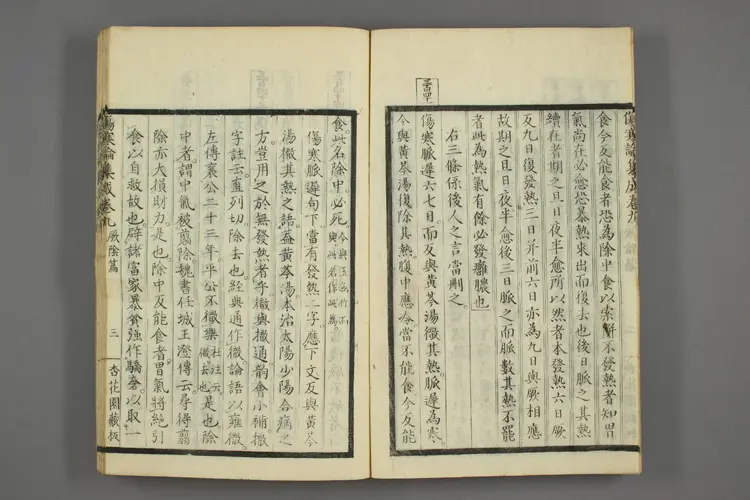 傷寒論集成卷九
食今反能食者恐為除中食以索餅不發熱者知胃
氣尚在必愈恐暴熱來出而復去也後日脈之其熱
續在者期之旦日夜半愈所以然者本發熱六日厥
反九日復發熱三日并前六日亦為九日與厥相應
故期之旦日夜半愈後三日脈之而脈數其熱不罷
者此為熱氣有餘必發癰膿也
右三條係後人之言當刪之
傷寒脈遲六七日而反與黃芩湯徹其熱脈遲為寒
今與黃芩湯復除其熱腹中應冷當不能食今反能
食此名除中必死
傷寒脈遲句下當有發熱二字應下文反與黃芩
湯徹其熱之語蓋黃芩湯本治太陽少陽合病之
方豈用之於無發熱者乎徹與撤通韵會小補撤
字註云直列切除去也經典通作徹論語以雍徹
左傳襄公二十三年平公不徹樂杜注云徹去也是也除
中者謂中氣被翦除魏書任城王澄傳云尋得翦
除亦大損財力是也除中反能食者胃氣將絕引
食以自救故也辟諸富家暴貧強作驕奢以取一
傷寒論集成卷九 厥陰篇 三 杏花園藏板